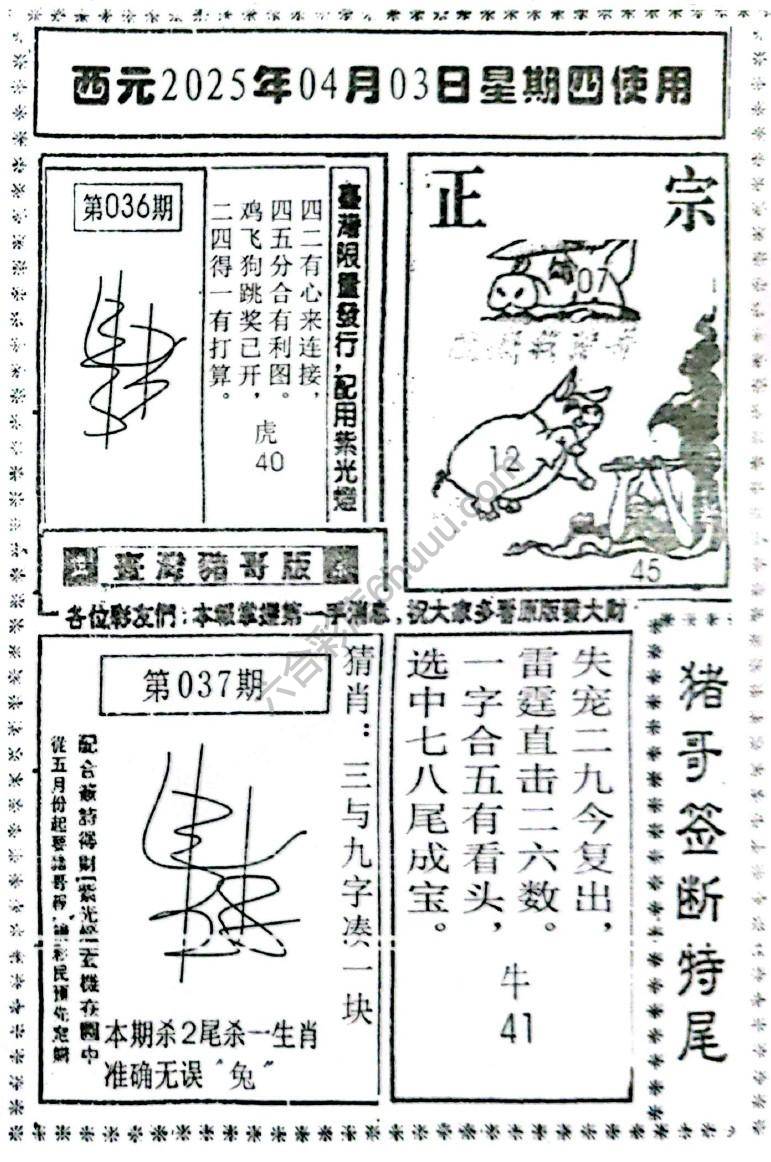 西元2025年04月03日星期四使用
第036期
臺灣限量發行,配用紫光燈
四二有心来连接,
四五分合有利图。
鸡飞狗跳奖已开,
二四得一有打算。
虎
40
正宗
07
12
45
臺灣豬哥版
各位彩友們:本報掌握第一手消息,祝大家多看原版發大財
第037期
猜肖:三与九字凑一块
從五月份起要豬哥報
本期杀2尾杀一生肖
准确无误“兔”
失宠二九今复出,
雷霆直击二六数。
一字合五有看头,
选中七八尾成宝。
牛
41
猪哥签断特尾
六合彩库6huuu.com